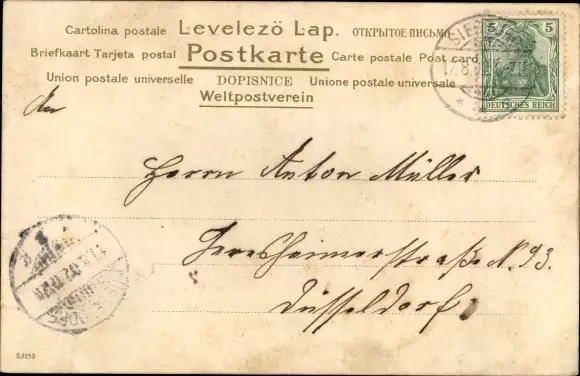 Cartolina postale Levelező Lap. ОТКРЫТОЕ ПИСЬМО
Briefkaart Tarjeta postal Postkarte Carte postale Post card
Union postale universelle DOPISNICE Unione postale universale
Weltpostverein
5 5
DEUTSCHES REICH
An
Herrn Anton Müller
Gerresheimerstraße N. 93.
Düsseldorf
S.1059